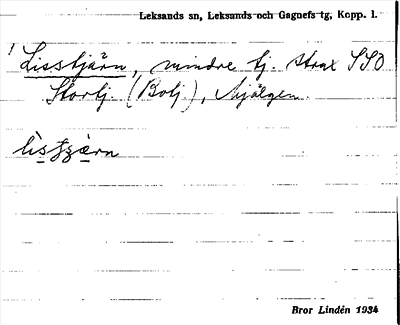 Leksands sn, Leksands och Gagnefs tg, Kopp. l.
! Lisstjärn, mindre tj. strax SSO
Stortj. (Botj.), Mjälgen.
lisʃärn
Bror Lindén 1934